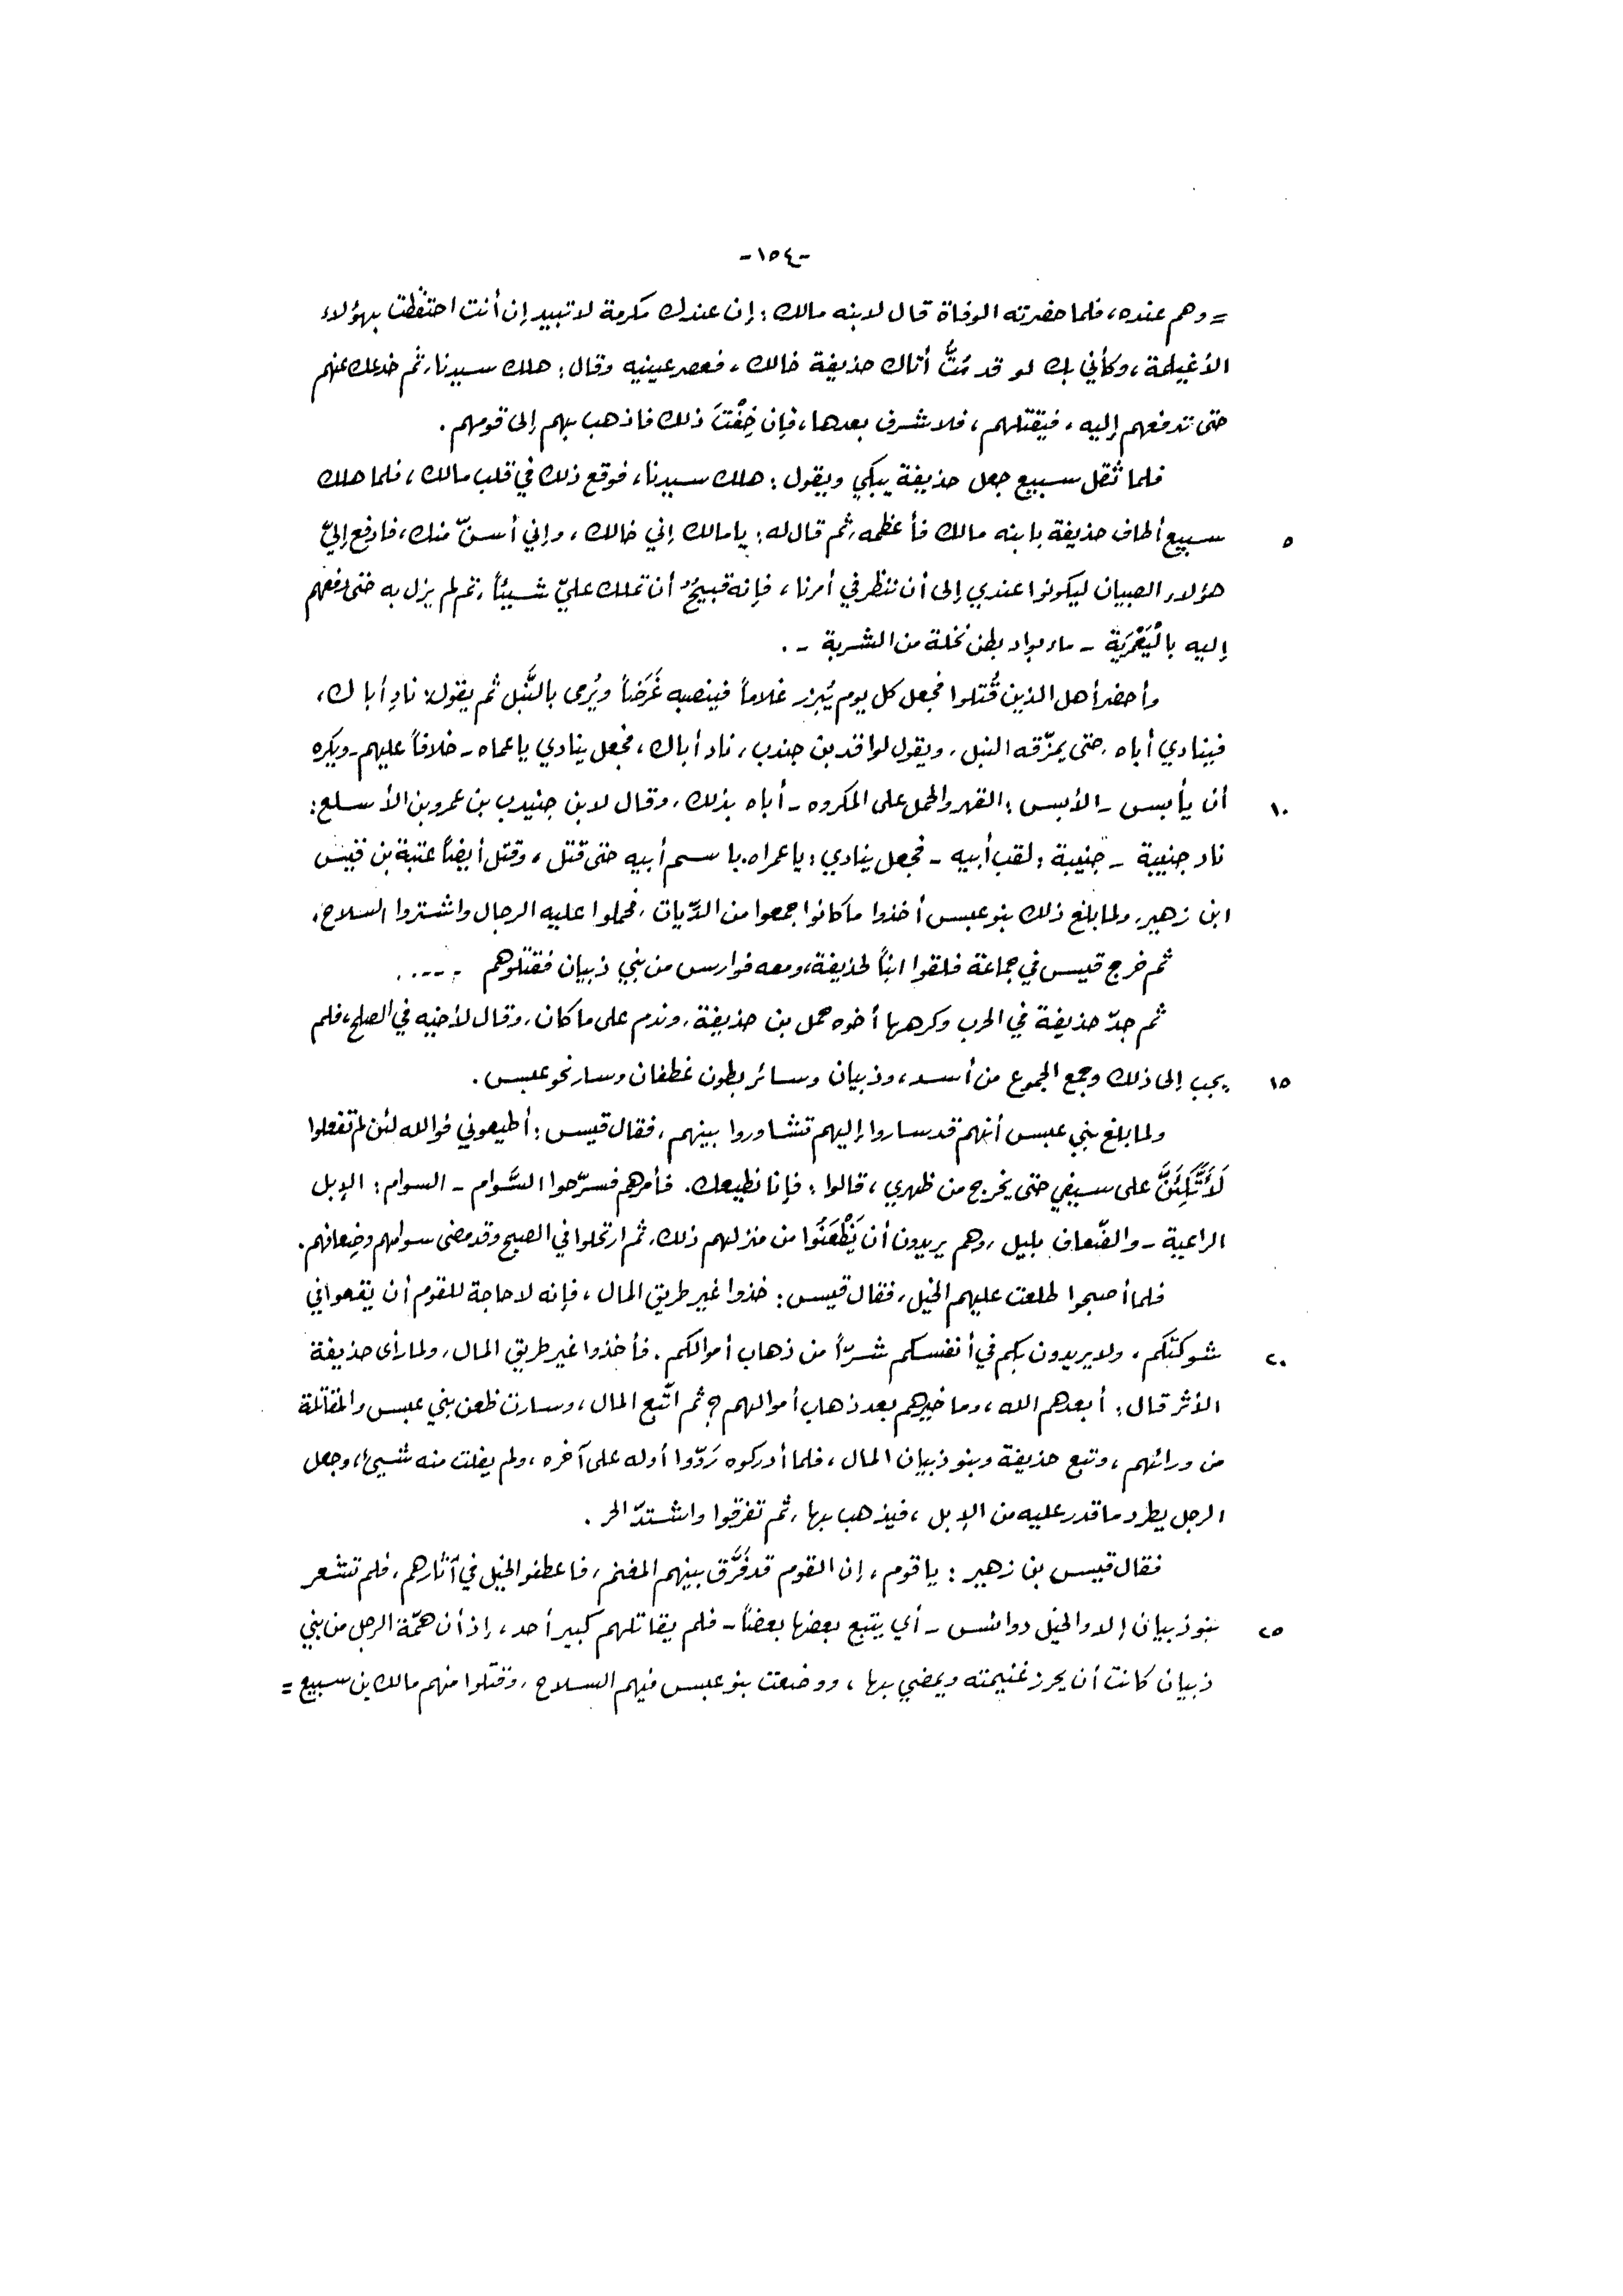 -١٥٤-
= وهم عنده، فلما حضرته الوفاة قال لابنه مالك: إن عندك مكرمة لا تبيد إن أنت احتفظت بهؤلاء
الأغيلمة، وكأني بك لو قد مُتُّ أتاك حذيفة خالك، فعصر عينيه وقال: هلك سيدنا، ثم خدعك عنهم
حتى تدفعهم إليه، فيقتلهم، فلا شرف بعدها، فإن خِفْتَ ذلك فاذهب بهم إلى قومهم.
فلما ثقل سبيع جعل حذيفة يبكي ويقول: هلك سيدنا، فوقع ذلك في قلب مالك، فلما هلك
٥ سبيع أطاف حذيفة بابنه مالك فأعظمه، ثم قال له: يا مالك إني خالك، وإني أسنّ منك، فادفع إليّ
هؤلاء الصبيان ليكونوا عندي إلى أن ننظر في أمرنا، فإنه قبيحٌ أن تملك عليّ شيئاً، ثم لم يزل به حتى دفعهم
إليه باليَعْمَرِية - ماء بواد بطن نخلة من الشربة -.
وأحضر أهل الذين قُتلوا فجعل كل يوم يُبرز غلاماً فينصبه غَرَضاً ويُرمى بالنَّبل ثم يقول: نادِ أباك،
فينادي أباه، حتى يمزّقه النبل، ويقول لواقد بن جندب، ناد أباك، فجعل ينادي يا عماه - خلافاً عليهم - ويكره
١٠ أن يأبس - الأبس: القهر والحمل على المكروه - أباه بذلك، وقال لابن جنيدب بن عمرو بن الأسلع:
ناد جنيبة - جنيبة: لقب أبيه - فجعل ينادي: يا عمراه. باسم أبيه حتى قتل، وقتل أيضاً عتبة بن قيس
ابن زهير، ولما بلغ ذلك بنو عبس أخذوا ما كانوا جمعوا من الدِّيات، فحملوا عليه الرجال واشتروا السلاح،
ثم خرج قيس في جماعة فلقوا ابناً لحذيفة، ومعه فوارس من بني ذبيان فقتلوهم .....
ثم جدّ حذيفة في الحرب وكرهها أخوه حمل بن حذيفة، وندم على ما كان، وقال لأخيه في الصلح، فلم
١٥ يجب إلى ذلك وجمع الجموع من أسد، وذبيان وسائر بطون غطفان وسار نحو عبس.
ولما بلغ بني عبس أنهم قد ساروا إليهم تشاوروا بينهم، فقال قيس: أطيعوني فوالله لئن لم تفعلوا
لَأَتَّكِئَنَّ على سيفي حتى يخرج من ظهري، قالوا: فإنا نطيعك. فأمرهم فسرّحوا السَّوام - السوام: الإبل
الراعية - والضّعاف بليل، وهم يريدون أن يَظْعَنُوا من منزلهم ذلك، ثم ارتحلوا في الصبح وقد مضى سوامهم وضِعافهم.
فلما أصبحوا طلعت عليهم الخيل، فقال قيس: خذوا غير طريق المال، فإنه لا حاجة للقوم أن يقعوا في
٢٠ شوكتكم، ولا يريدون بكم في أنفسكم شرّاً من ذهاب أموالكم. فأخذوا غير طريق المال، ولما رأى حذيفة
الأثر قال: أبعدهم الله، وما خيرهم بعد ذهاب أموالهم؟ ثم اتّبع المال، وسارت ظعن بني عبس والمقاتلة
من ورائهم، وتبع حذيفة وبنو ذبيان المال، فلما أدركوه رَدّوا أوله على آخره، ولم يفلت منه شيئ، وجعل
الرجل يطرد ما قدر عليه من الإبل، فيذهب بها، ثم تفرقوا واشتدّ الحر.
فقال قيس بن زهير: يا قوم، إن القوم قد فُرَّق بينهم المغنم، فاعطفو الخيل في آثارهم، فلم تشعر
٢٥ بنو ذبيان إلا والخيل دوائس - أي يتبع بعضها بعضاً - فلم يقاتلهم كبير أحد، إذ أن همّة الرجل من بني
ذبيان كانت أن يحرز غنيمته ويمضي بها، ووضعت بنو عبس فيهم السلاح، وقتلوا منهم مالك بن سبيع =